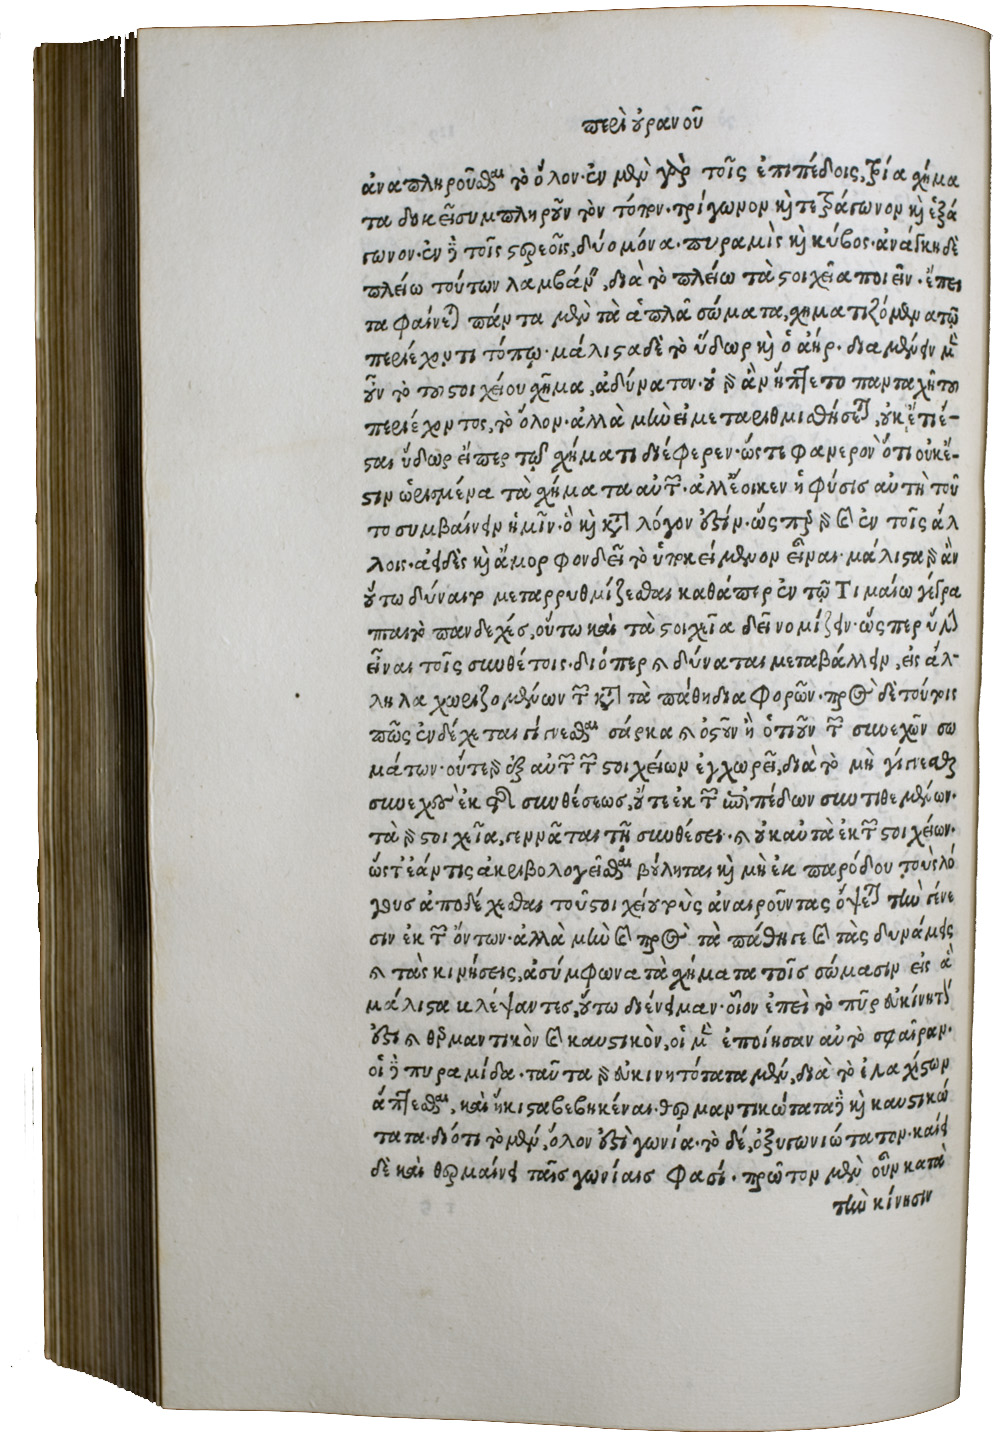 περὶ οὐρανοῦ
ἀναπληροῦσθαι τὸ ὅλον· ἐν μὲν γὰρ τοῖς ἐπιπέδοις, τρία χήμα
τα δοκεῖ συμπληροῦν τὸν τόπον· τρίγωνον καὶ τετράγωνον καὶ ἑξά
γωνον· ἐν δὲ τοῖς στερεοῖς, δύο μόνα· πυραμὶς καὶ κύβος· ἀνάγκη δὲ
πλείω τούτων λαμβάνειν, διὰ τὸ πλείω τὰ στοιχεῖα ποιεῖν· ἔπει
τα φαίνεται πάντα μὲν τὰ ἁπλᾶ σώματα, χηματιζόμενα τῷ
περιέχοντι τόπῳ· μάλιστα δὲ τὸ ὕδωρ καὶ ὁ ἀήρ· διαμένειν μὲν
οὖν τὸ τοῦ στοιχείου χῆμα, ἀδύνατον· οὐ γὰρ ἂν ἥπτετο πανταχῆ τοῦ
περιέχοντος, τὸ ὅλον· ἀλλὰ μὴν εἰ μεταριθμισθήσεται, οὐκ ἔτι ἔ-
σται ὕδωρ εἴπερ τῷ χήματι διέφερεν· ὥστε φανερὸν ὅτι οὐκ ἔ-
στιν ὡρισμένα τὰ χήματα αὐτῶν· ἀλλ' ἔοικεν ἡ φύσις αὐτὴ τοῦ
το συμβαίνειν ἡμῖν· ὃ καὶ κατὰ λόγον ἐστίν· ὥσπερ γὰρ καὶ ἐν τοῖς ἄλ
λοις· ἀειδὲς καὶ ἄμορφον δεῖ τὸ ὑποκείμενον εἶναι· μάλιστα γὰρ ἂν
οὕτω δύναιτο μεταρρυθμίζεσθαι καθάπερ ἐν τῷ Τιμαίω γέγρα
πται τὸ πανδεχές, οὕτω καὶ τὰ στοιχεῖα δεῖ νομίζειν· ὥσπερ ὕλην
εἶναι τοῖς συνθέτοις· διόπερ καὶ δύναται μεταβάλλειν, εἰς ἄλ-
ληλα χωριζομένων τῶν κατὰ τὰ πάθη διαφορῶν· πρὸς δὲ τούτοις
πῶς ἐνδέχεται γίγνεσθαι σάρκα καὶ ὀστοῦν ἢ ὁτιοῦν τῶν συνεχῶν σω
μάτων· οὔτε γὰρ ἐξ αὐτῶν τῶν στοιχείων ἐγχωρεῖ, διὰ τὸ μὴ γίγνεσθαι
συνεχὲς ἐκ τῆς συνθέσεως, οὔτε ἐκ τῶν ἐπιπέδων συντιθεμένων·
τὰ γὰρ στοιχεῖα, γεννᾶται τῇ συνθέσει· καὶ οὐκ αὐτὰ ἐκ τῶν στοιχείων·
ὥστ' ἐάν τις ἀκριβολογεῖσθαι βούληται καὶ μὴ ἐκ παρόδου τοὺς λό
γους ἀποδέχεσθαι τοὺς τοιούτους ἀναιροῦντας ὄψεται τὴν γένε
σιν ἐκ τῶν ὄντων· ἀλλὰ μὴν καὶ πρὸς τὰ πάθη γε καὶ τὰς δυνάμεις
καὶ τὰς κινήσεις, ἀσύμφωνα τὰ χήματα τοῖς σώμασιν εἰς ἃ
μάλιστα κλέψαντες, οὕτω διένειμαν· οἷον ἐπεὶ τὸ πῦρ εὐκίνητόν
ἐστι καὶ θερμαντικὸν καὶ καυστικὸν, οἱ μὲν ἐποίησαν αὐτὸ σφαῖραν·
οἱ δὲ πυραμίδα· ταῦτα γὰρ εὐκινητότατα μὲν, διὰ τὸ ἐλαχίστων
ἅπτεσθαι, καὶ ἥκιστα βεβηκέναι· θερμαντικώτατα δὲ καὶ καυστικώ
τατα· διότι τὸ μὲν, ὅλον ἐστὶ γωνία· τὸ δέ, ὀξυγωνιώτατον· καίει
δὲ καὶ θερμαίνει ταῖς γωνίαις φασί· πρῶτον μὲν οὖν κατὰ
τὴν κίνησιν